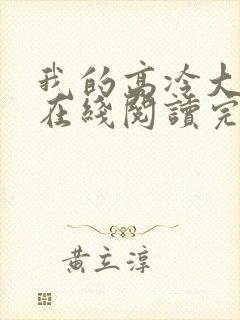 我的高冷大
在綫閱讀完
黃立淳